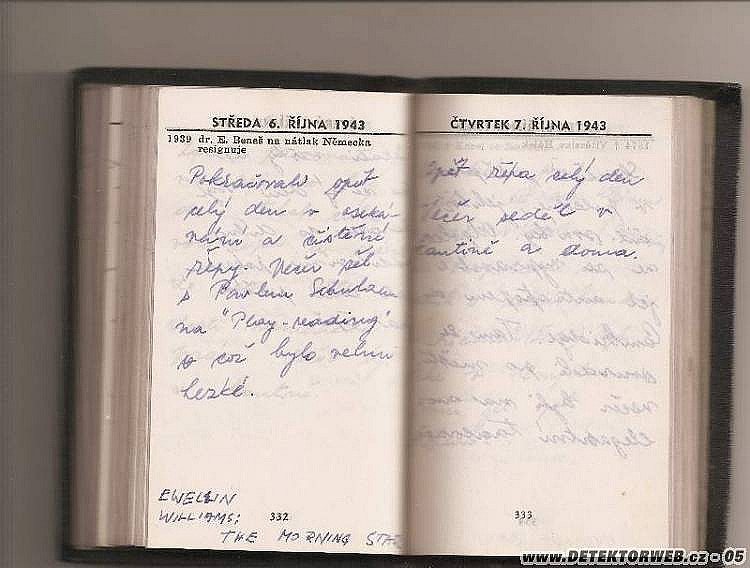 STŘEDA 6. ŘÍJNA 1943
1939 dr. E. Beneš na nátlak Německa
resignuje
Pokračovali opět
celý den v oseká-
vání a čištění
řepy. Večer šel
s Pavlem
na "Play-reading"
a což bylo velmi
hezké.
EWELLIN
WILLIAMS:
THE MORNING STAR
332
ČTVRTEK 7. ŘÍJNA 1943
Opět řepa celý den
Večer seděl v
kantině a doma.
333
www.DETEKTORWEB.cz • 05